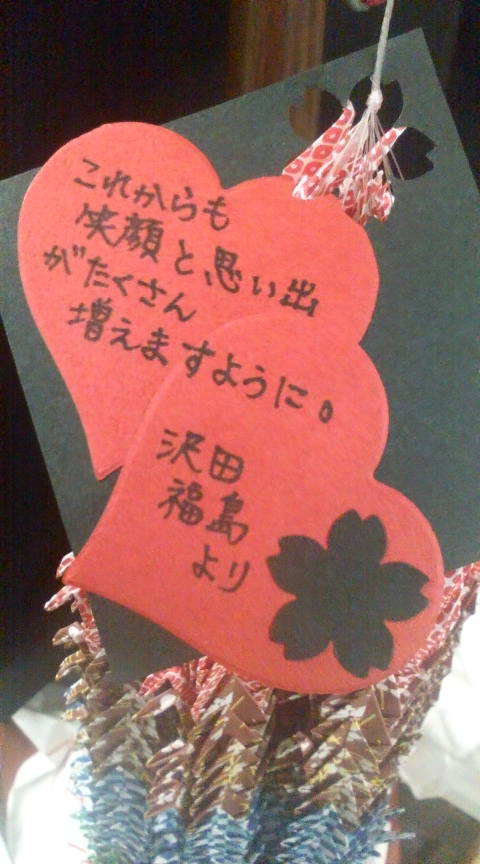 これからも
笑顔と、思い出
がたくさん
増えますように。
沢田
福島
より